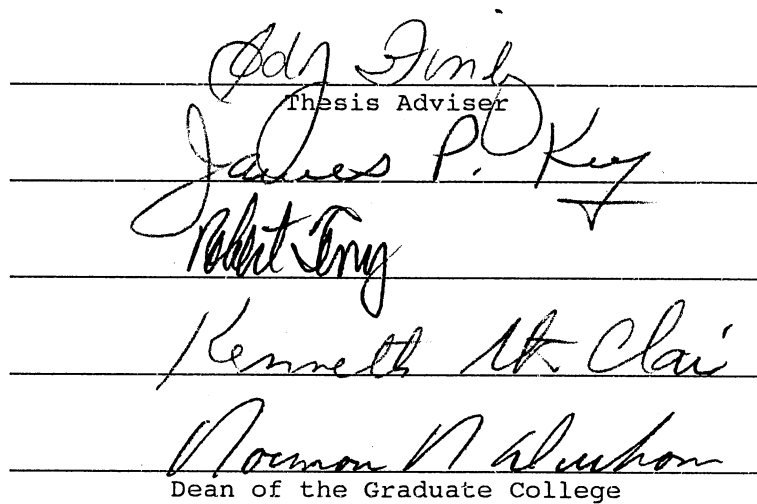 Thesis Adviser
James P. Key
Robert Terry
Kenneth St. Clair
Norman N Durham
Dean of the Graduate College